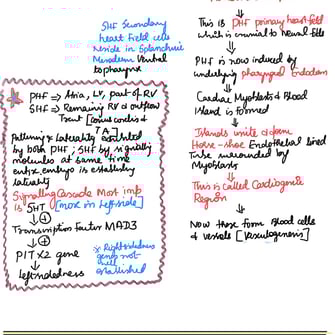 SHF Secondary
heart field cells
Reside in Splanchnic
Mesoderm Ventral
to pharynx
PHF ⇒ Atria, LV, part of RV
SHF ⇒ Remaining RV & outflow
Tract [conus cordis &
TA]
Patterning & laterality exhibited
by both PHF; SHF by signalling
molecules at same time
entire embryo is establishing
laterality
Signalling Cascade Most imp
is 5HT [more in left side]
↓ +
Transcription factor MAD3
↓ +
PITX2 gene
↓
Leftsidedness
* Right sidedness
genes not
well
established
↓
This is PHF primary heart field
which is crucial to Neural folds
↓
PHF is now induced by
underlying pharyngeal Endoderm
↓
Cardiac Myoblasts & Blood
Island is formed
↓
Islands unite & form
Horse-shoe Endothelial lined
Tube surrounded by
Myoblasts
↓
This is called Cardiogenic
Region
↓
Now these form Blood cells
& vessels [vasculogenesis]